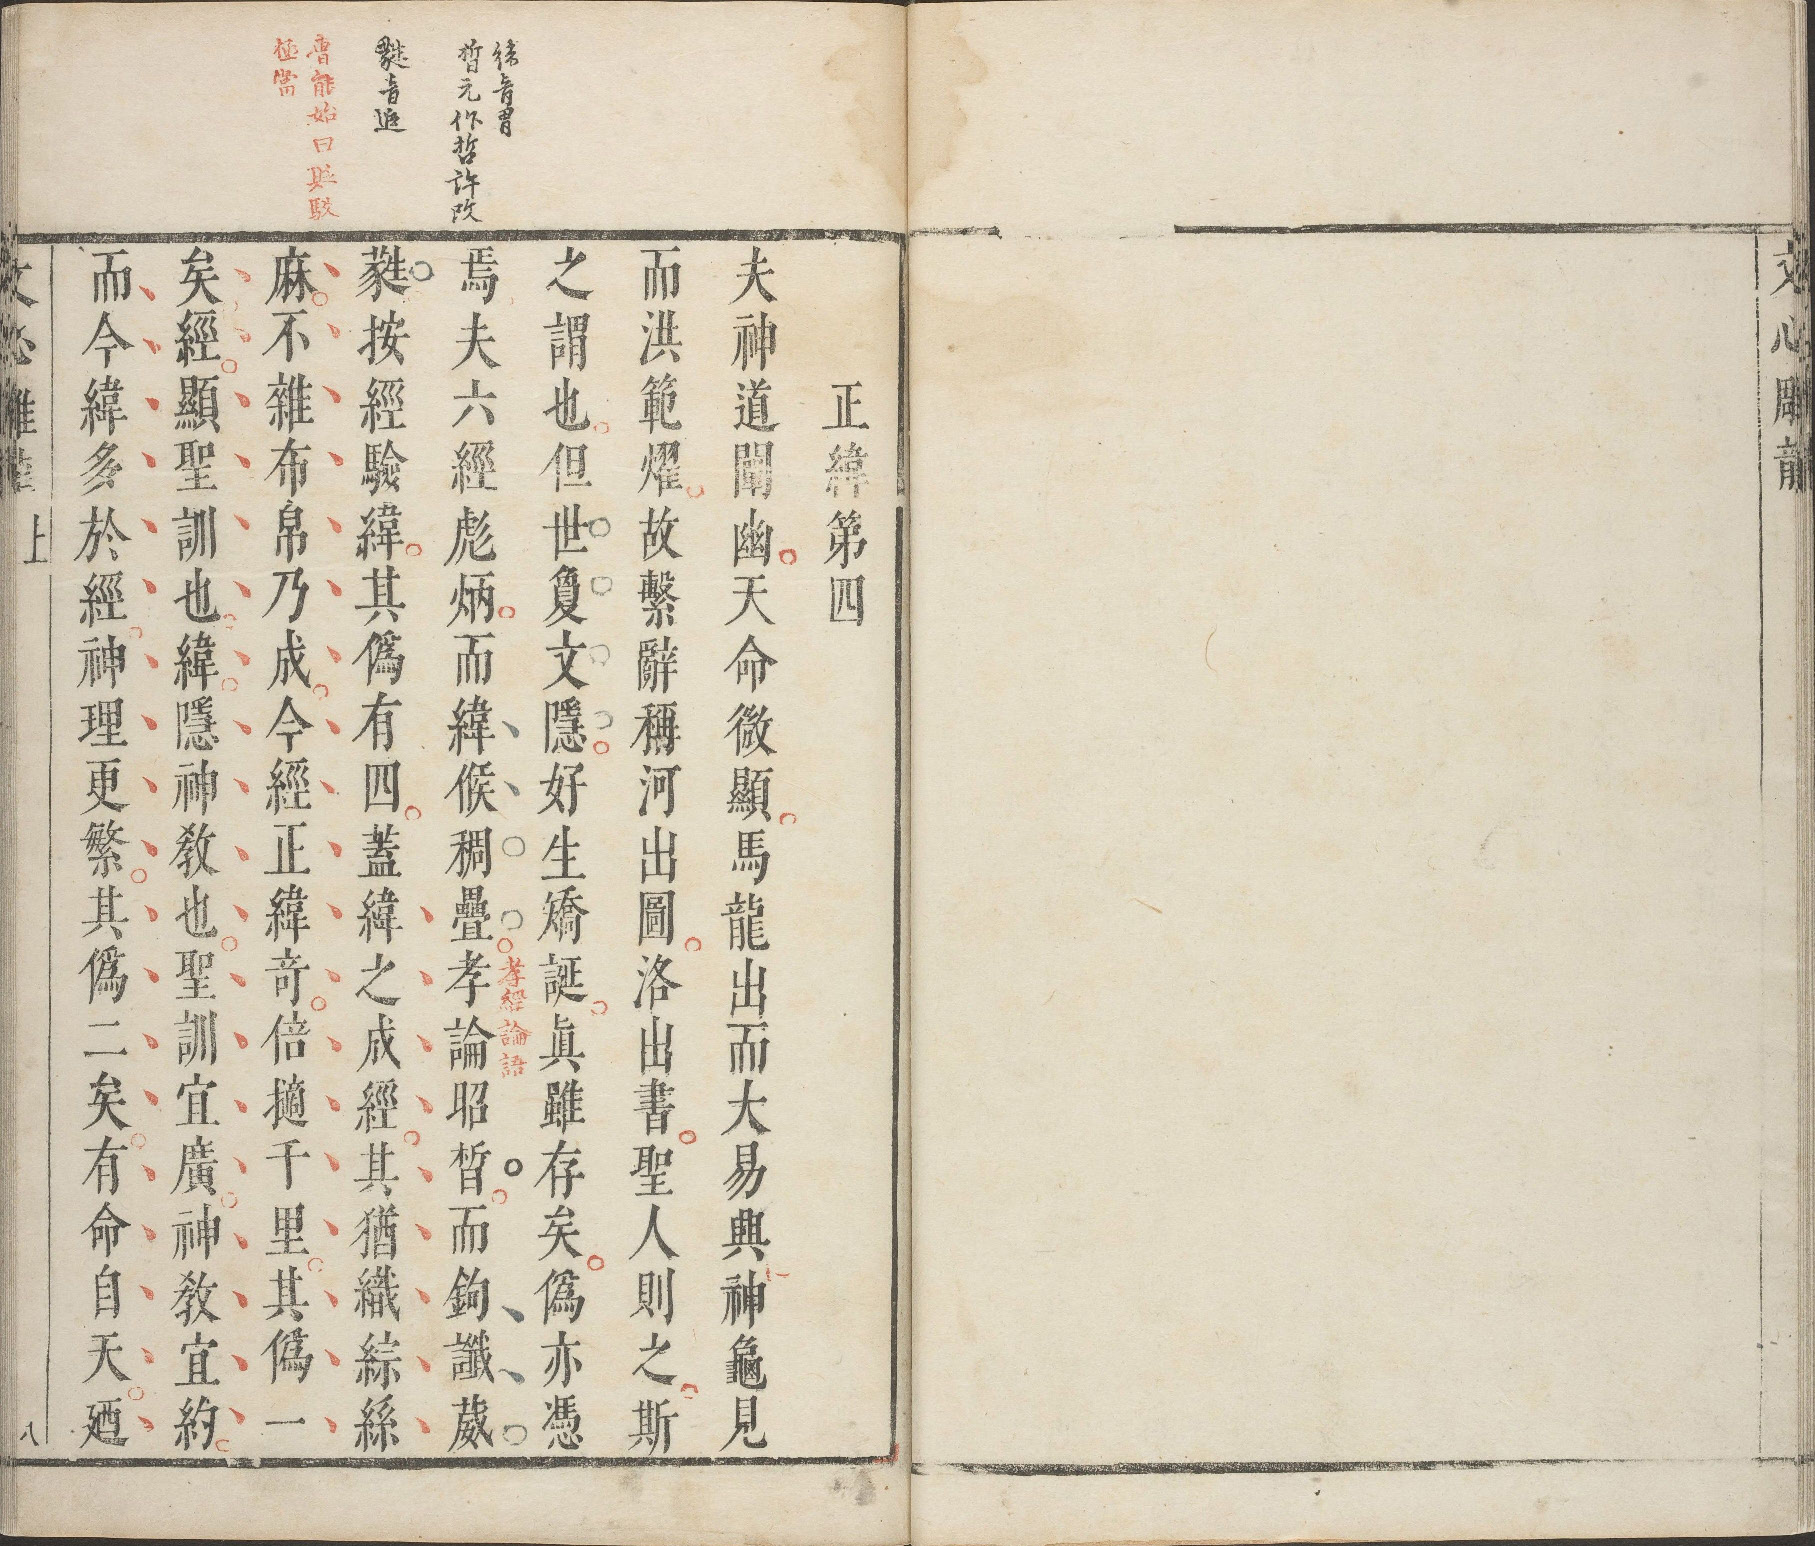 文心雕龍
緯音胃
晳元作哲許改
蕤音追
曹能始曰馭
極當
正緯第四
夫神道闡幽天命微顯馬龍出而大易興神龜見
而洪範燿故繫辭稱河出圖洛出書聖人則之斯
之謂也但世敻文隱好生矯誕眞雖存矣僞亦憑
焉夫六經彪炳而緯候稠疊孝論昭晳而鉤讖葳
孝經論語
蕤按經驗緯其僞有四蓋緯之成經其猶織綜絲
麻不雜布帛乃成今經正緯奇倍擿千里其僞一
矣經顯聖訓也緯隱神敎也聖訓宜廣神敎宜約
而今緯多於經神理更繁其僞二矣有命自天廼
文心雕龍
上
八